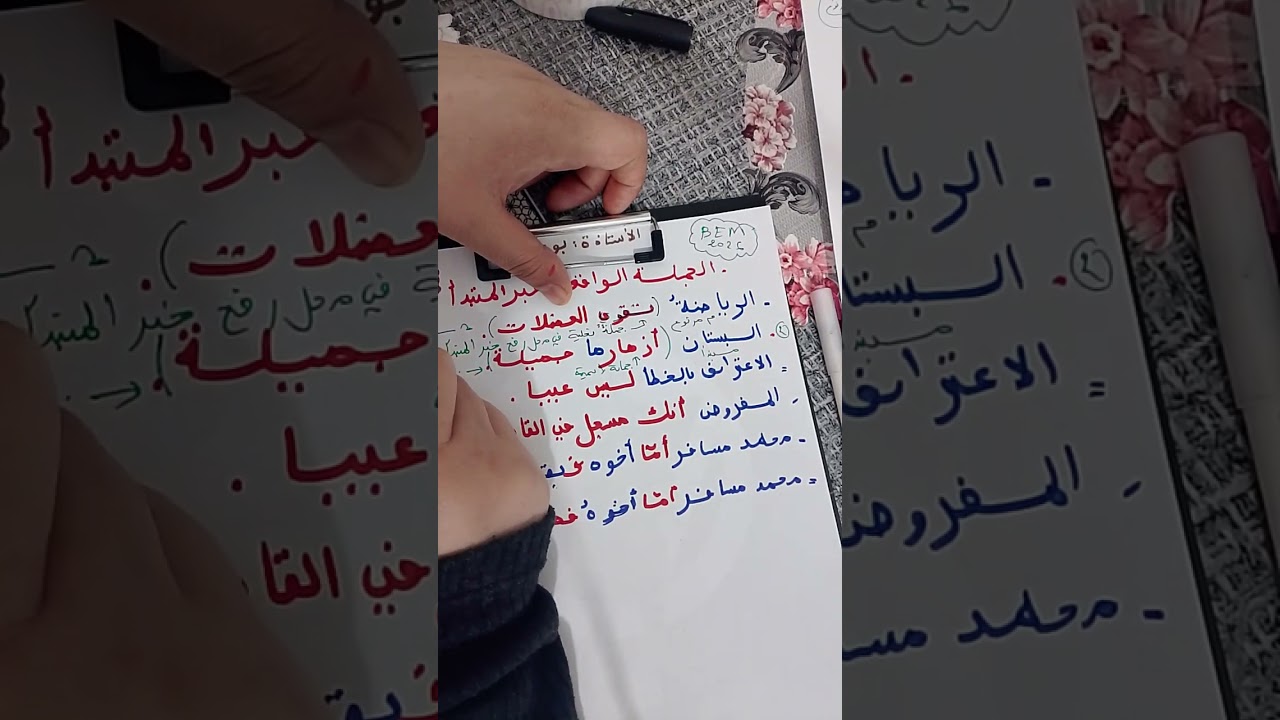 BEM
الأستاذة : بو
- الجملة الواقعة خبر المبتدأ
- الرياضةُ (تقوي العضلات).
م مرفوع جملة فعلية في محل رفع خبر المبتدأ
② - البستان (أزهارها جميلة)
مبتدأ جملة اسمية
= الاعتراف بالخطأ ليس عيبا .
- المفروض أنك مسجل في القا
- محمد مسافر أمّا أخوه
= محمد مسافر أمّا أخوهُ